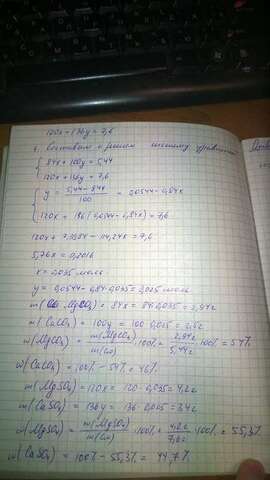 120x + 136y = 7,6
4. Составим и решим систему уравнений
84x + 100y = 5,44
120x + 136y = 7,6
y = (5,44 - 84x) / 100 = 0,0544 - 0,84x
120x + 136(0,0544 - 0,84x) = 7,6
120x + 7,3984 - 114,24x = 7,6
5,76x = 0,2016
x = 0,035 моль
y = 0,0544 - 0,84·0,035 = 0,025 моль
m(MgCO₃) = 84x = 84·0,035 = 2,94г
m(CaCO₃) = 100y = 100·0,025 = 2,5г
w(MgCO₃) = m(MgCO₃) / m(см) · 100% = 2,94г / 5,44г · 100% = 54%
w(CaCO₃) = 100% - 54% = 46%
m(MgSO₄) = 120x = 120·0,035 = 4,2г
m(CaSO₄) = 136y = 136·0,025 = 3,4г
w(MgSO₄) = m(MgSO₄) / m(см) · 100% = 4,2г / 7,6г · 100% = 55,3%
w(CaSO₄) = 100% - 55,3% = 44,7%